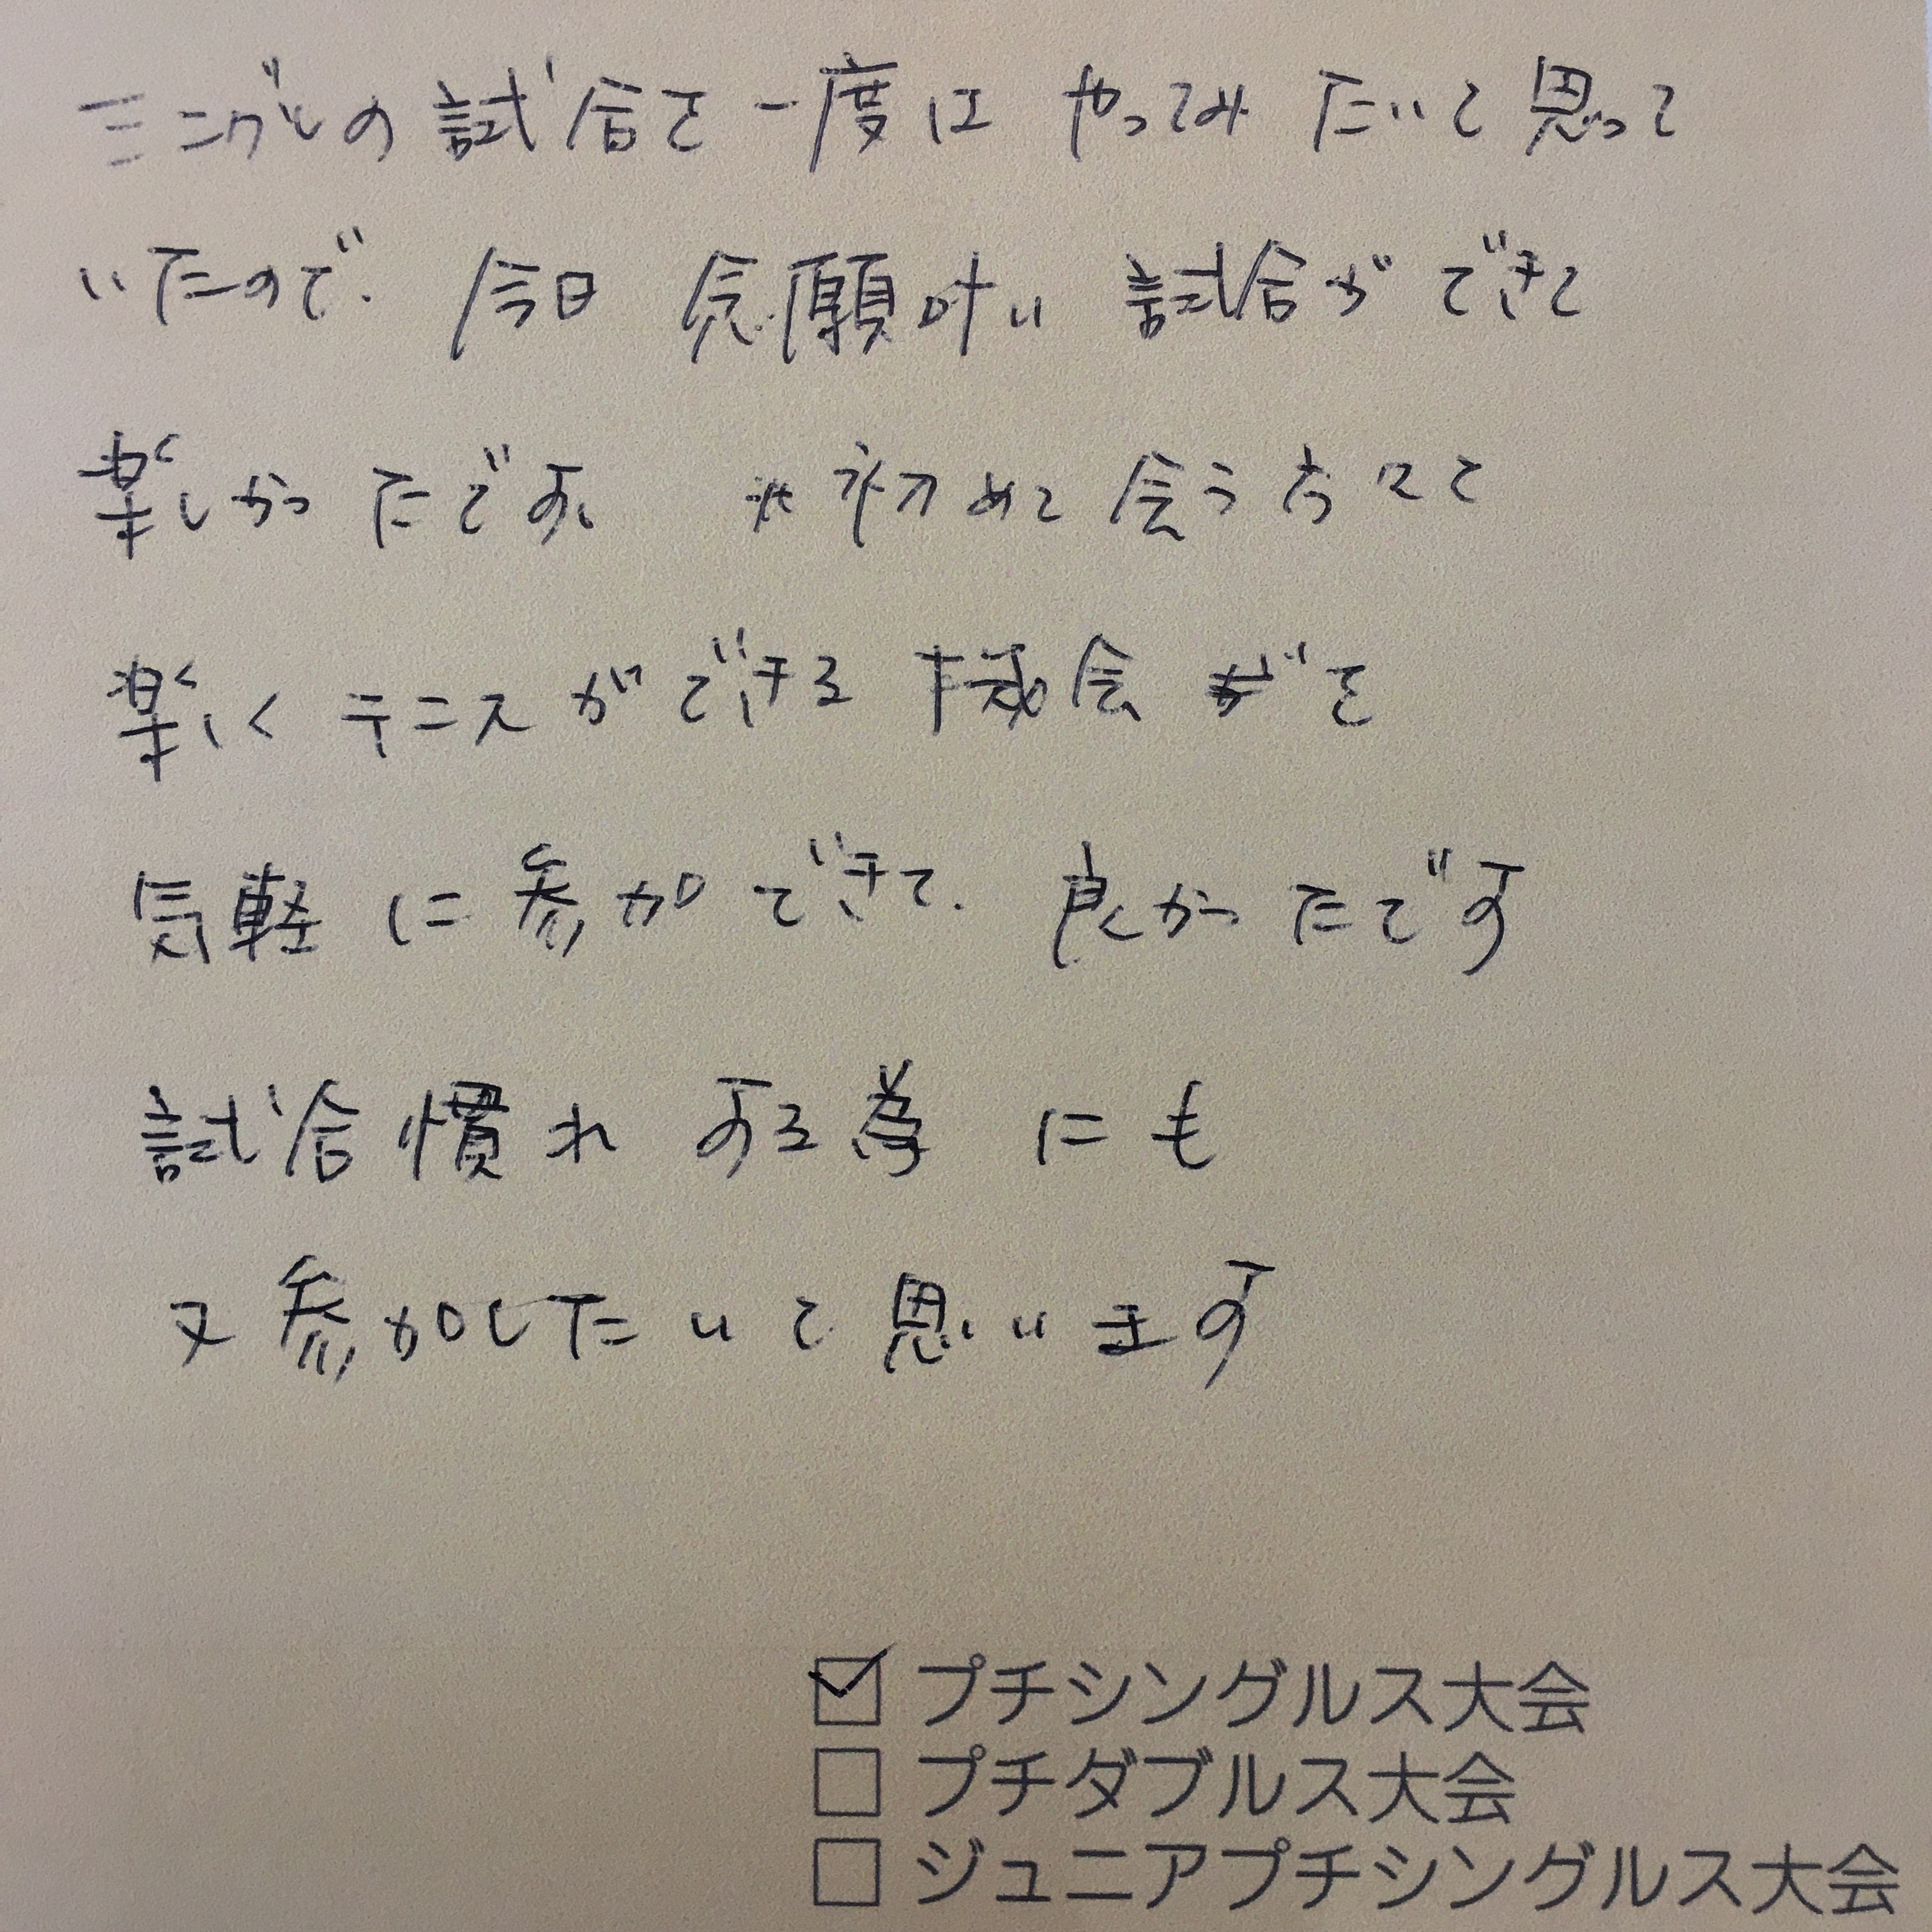 シングルの試合を一度は やってみたいと思って
いたので、今日 念願叶い 試合ができて
楽しかったです。 初めて会う方々と
楽しくテニスができる機会を
気軽に参加できて、良かったです
試合慣れする為にも
又参加したいと思います
☑ プチシングルス大会
☐ プチダブルス大会
☐ ジュニアプチシングルス大会